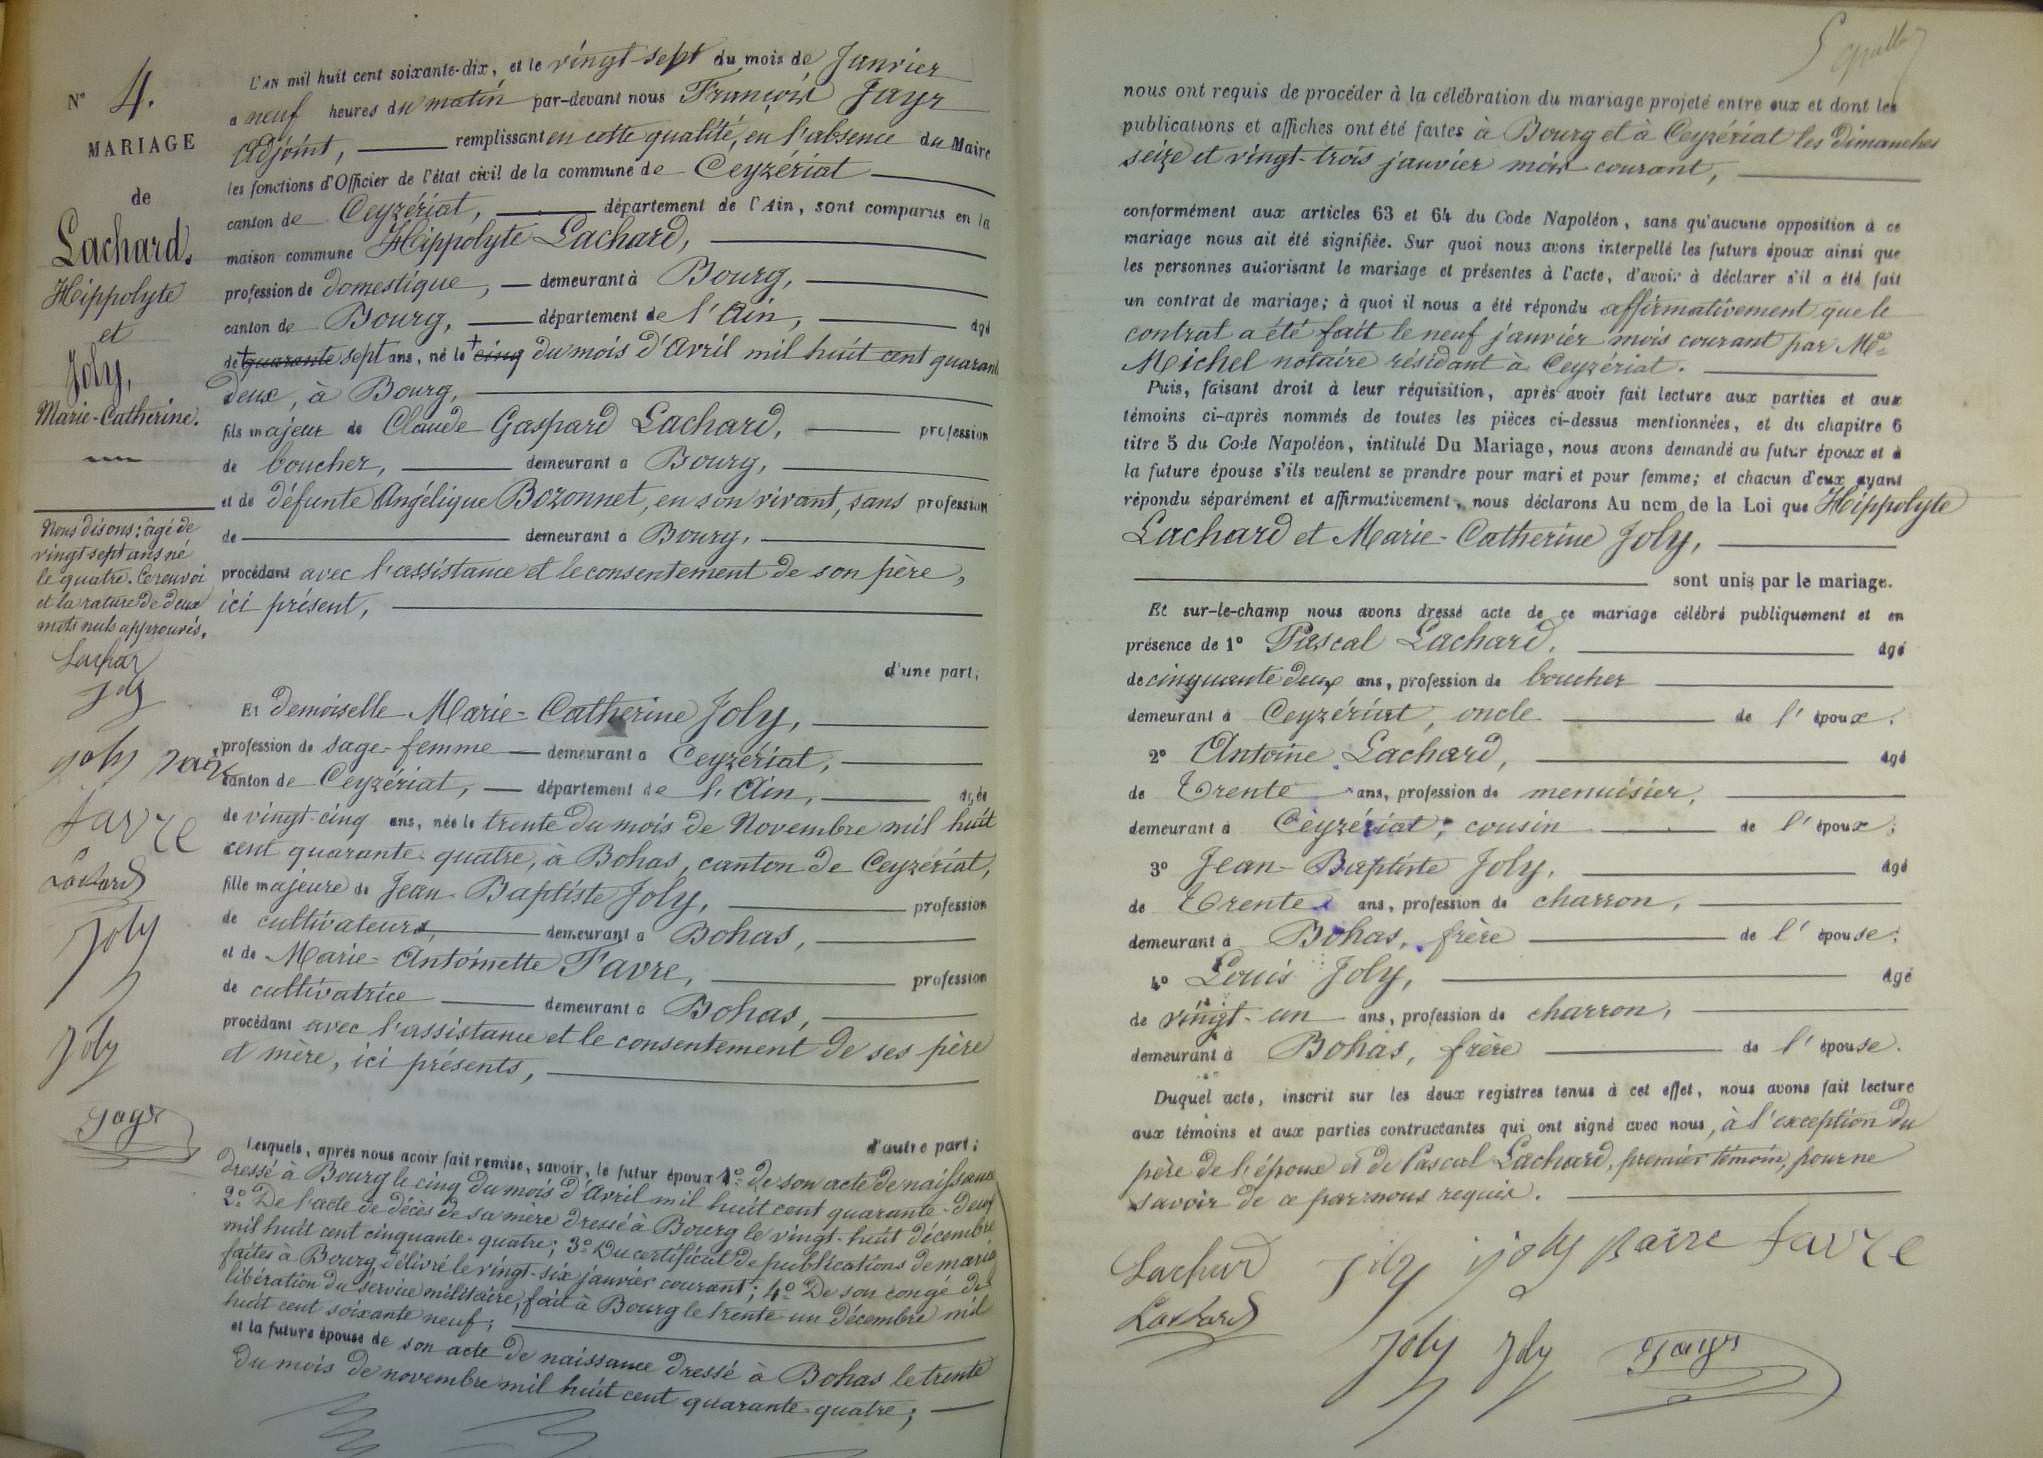 N° 4.
MARIAGE
de
Lachard,
Hippolyte
et
Joly,
Marie-Catherine.
Nous disons: âgé de
vingt sept ans né
le quatre. Ce renvoi
et la rature de deux
mots nuls approuvés.
Lachar
joly
joly
favre
Lachard
Joly
Joly
Jayr
L'AN mil huit cent soixante-dix, et le vingt-sept du mois de Janvier
a neuf heures du matin par-devant nous François Jayr
Adjoint, remplissant en cette qualité, en l'absence du Maire
les fonctions d'Officier de l'état civil de la commune de Ceyzériat
canton de Ceyzériat, département de l'Ain, sont comparus en la
maison commune Hippolyte Lachard,
profession de domestique, demeurant à Bourg,
canton de Bourg, département de l'Ain, âgé
de + quarante sept ans, né le + cinq du mois d'Avril mil huit cent quarante
deux, à Bourg,
fils majeur de Claude Gaspard Lachard, profession
de boucher, demeurant a Bourg,
et de défunte Angélique Bozonnet, en son vivant, sans profession
de demeurant a Bourg,
procédant avec l'assistance et le consentement de son père,
ici présent,
d'une part;
Et demoiselle Marie-Catherine Joly,
profession de sage-femme demeurant a Ceyzériat,
canton de Ceyzériat, département de l'Ain, âgée
de vingt-cinq ans, née le trente du mois de Novembre mil huit
cent quarante-quatre, à Bohas, canton de Ceyzériat,
fille majeure de Jean-Baptiste Joly, profession
de cultivateur, demeurant a Bohas,
et de Marie-Antoinette Favre, profession
de cultivatrice demeurant a Bohas,
procédant avec l'assistance et le consentement de ses père
et mère, ici présents,
d'autre part;
Lesquels, après nous avoir fait remise, savoir, le futur époux 1° de son acte de naissance
dressé à Bourg le cinq du mois d'Avril mil huit cent quarante-deux
2° De l'acte de décès de sa mère dressé à Bourg le vingt-huit décembre
mil huit cent cinquante-quatre; 3° Du certificat de publications de mariage
faites à Bourg, délivré le vingt-six janvier courant; 4° De son congé de
libération du service militaire, fait à Bourg le trente un Décembre mil
huit cent soixante neuf;
et la future épouse de son acte de naissance dressé à Bohas le trente
du mois de novembre mil huit cent quarante-quatre;
nous ont requis de procéder à la célébration du mariage projeté entre eux et dont les
publications et affiches ont été faites à Bourg et à Ceyzériat les dimanches
seize et vingt-trois janvier mois courant,
conformément aux articles 63 et 64 du Code Napoléon, sans qu'aucune opposition à ce
mariage nous ait été signifiée. Sur quoi nous avons interpellé les futurs époux ainsi que
les personnes autorisant le mariage et présentes à l'acte, d'avoir à déclarer s'il a été fait
un contrat de mariage; à quoi il nous a été répondu affirmativement que le
contrat a été fait le neuf janvier mois courant par Me
Michel notaire résidant à Ceyzériat.
Puis, faisant droit à leur réquisition, après avoir fait lecture aux parties et aux
témoins ci-après nommés de toutes les pièces ci-dessus mentionnées, et du chapitre 6
titre 5 du Code Napoléon, intitulé Du Mariage, nous avons demandé au futur époux et à
la future épouse s'ils veulent se prendre pour mari et pour femme; et chacun d'eux ayant
répondu séparément et affirmativement, nous déclarons Au nom de la Loi que Hippolyte
Lachard et Marie-Catherine Joly,
sont unis par le mariage.
Et sur-le-champ nous avons dressé acte de ce mariage célébré publiquement et en
présence de 1° Pascal Lachard, âgé
de cinquante deux ans, profession de boucher
demeurant à Ceyzériat, oncle de l'époux.
2° Antoine Lachard, âgé
de Trente ans, profession de menuisier,
demeurant à Ceyzériat; cousin de l'époux;
3° Jean-Baptiste Joly, âgé
de Trente ans, profession de charron,
demeurant à Bohas, frère de l'épouse;
4° Louis Joly, âgé
de vingt-un ans, profession de charron,
demeurant à Bohas, frère de l'épouse.
Duquel acte, inscrit sur les deux registres tenus à cet effet, nous avons fait lecture
aux témoins et aux parties contractantes qui ont signé avec nous, à l'exception du
père de l'époux et de Pascal Lachard, premier témoin, pour ne
savoir de ce par nous requis.
Lachard joly joly favre
Lachard Joly Joly Jayr